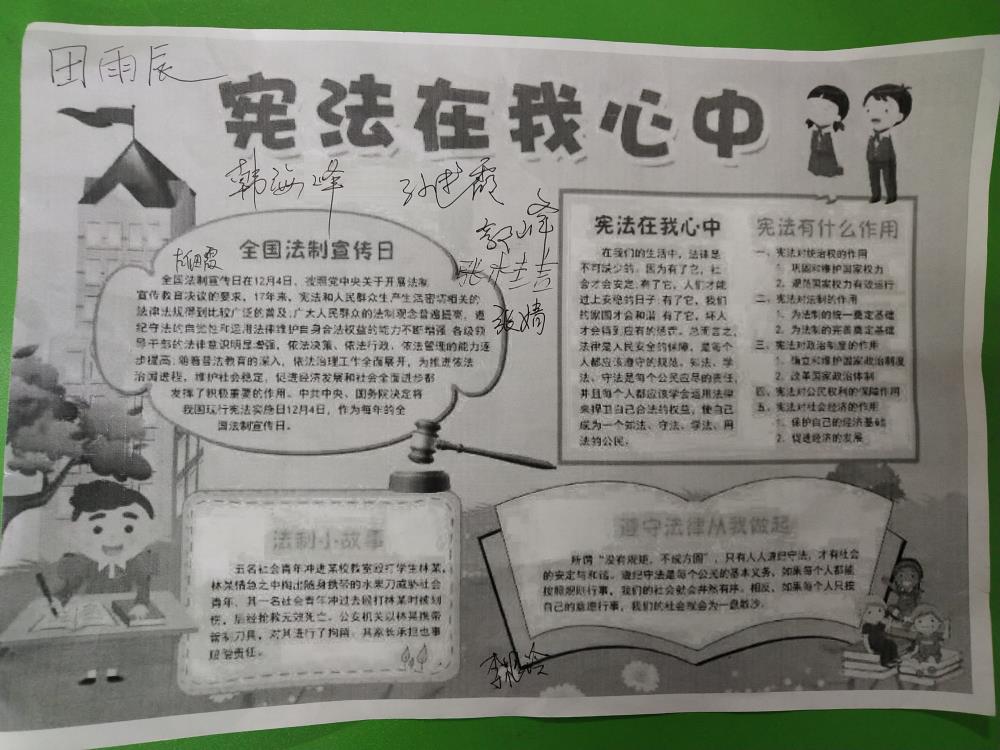 田雨辰
宪法在我心中
韩海峰
张桂吉
张婧
全国法制宣传日
全国法制宣传日在12月4日，按照党中央关于开展法制
宣传教育决议的要求，17年来，宪法和人民群众生产生活密切相关的
法律法规得到比较广泛的普及，广大人民群众的法制观念普遍提高，遵
纪守法的自觉性和运用法律维护自身合法权益的能力不断增强 各级领
导干部的法律意识明显增强，依法决策、依法行政、依法管理的能力逐
步提高，随着普法教育的深入，依法治理工作全面展开，为推进依法
治国进程，维护社会稳定，促进经济发展和社会全面进步都
发挥了积极重要的作用。中共中央、国务院决定将
我国现行宪法实施日12月4日，作为每年的全
国法制宣传日。
宪法在我心中
在我们的生活中，法律是
不可缺少的。因为有了它，社
会才会安定，有了它，人们才能
过上安稳的日子；有了它，我们
的家园才会和谐 有了它，坏人
才会得到应有的惩罚。总而言之，
法律是人民安全的保障，是每个
人都应该遵守的规范。知法、学
法、守法是每个公民应尽的责任，
并且每个人都应该学会运用法律
来捍卫自己合法的权益，使自己
成为一个知法、守法、学法、用
法的公民。
宪法有什么作用
一、宪法对统治权的作用
1. 巩固和维护国家权力
2. 规范国家权力有效运行
二、宪法对法制的作用
1. 为法制的统一奠定基础
2. 为法制的完善奠定基础
三、宪法对政治制度的作用
1. 确立和维护国家政治制度
2. 改革国家政治体制
四、宪法对公民权利的保障作用
五、宪法对社会经济的作用
1. 保护自己的经济基础
2. 促进经济的发展
法制小故事
五名社会青年冲进某校教室殴打学生林某，
林某情急之中掏出随身携带的水果刀威胁社会
青年，其一名社会青年冲过去殴打林某时被划
伤，后经抢救无效死亡。公安机关以林某携带
管制刀具，对其进行了拘留，其家长承担也事
赔偿责任。
遵守法律从我做起
所谓“没有规矩，不成方圆”，只有人人遵纪守法，才有社会
的安定与和谐。遵纪守法是每个公民的基本义务，如果每个人都能
按照规则行事，我们的社会就会井然有序。相反，如果每个人只按
自己的意愿行事，我们的社会就会为一盘散沙。